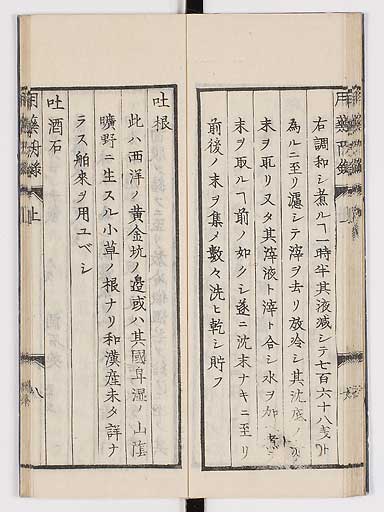 右調和シ煮ルヿ一時半其液減シテ七百六十八戔ト
為ルニ至リ濾シテ滓ヲ去リ放冷シ其沈底ノ
末ヲ取リ又タ其滓液ト滓ト合シ水ヲ加
末ヲ取ルヿ前ノ如クシ遂ニ沈末ナキニ至リ
前後ノ末ヲ集メ數々洗ヒ乾シ貯フ
吐根
此ハ西洋ノ黄金坑ノ邉或ハ其國卑湿ノ山蔭
曠野ニ生スル小草ノ根ナリ和漢産未タ詳ナ
ラス舶來ヲ用ユベシ
吐酒石
上
八